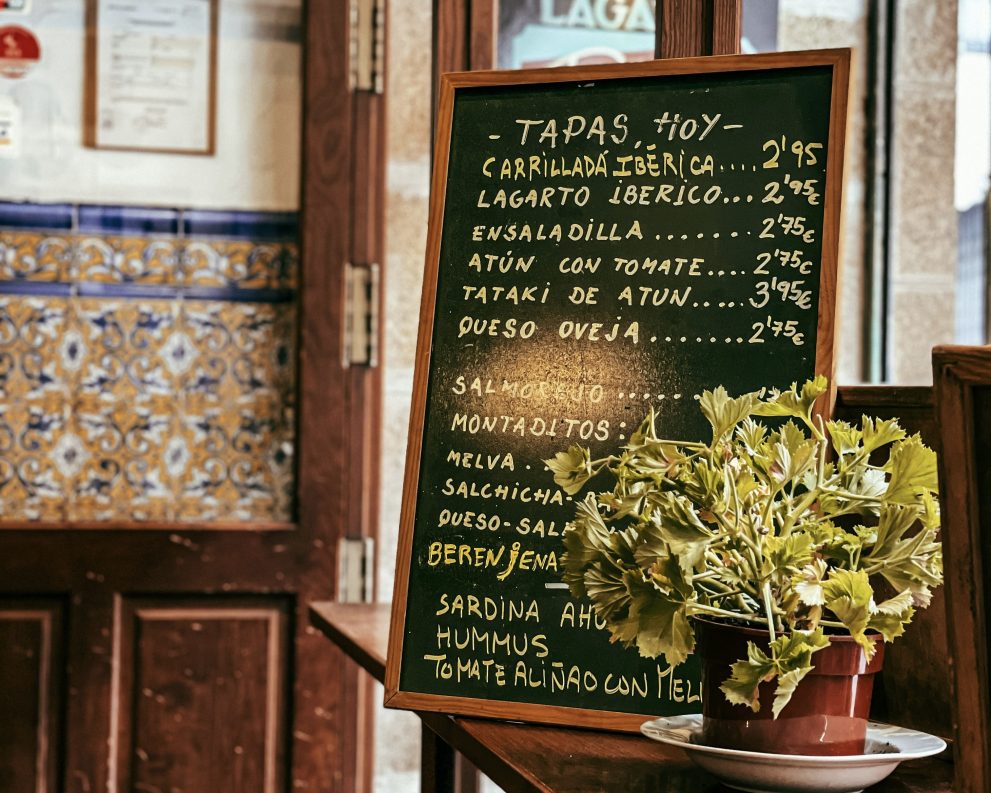 - TAPAS, HOY -
CARRILLADA IBÉRICA.... 2'95
LAGARTO IBERICO... 2'95€
ENSALADILLA ....... 2'75€
ATÚN CON TOMATE.... 2'75€
TATAKI DE ATUN..... 3'95€
QUESO OVEJA ....... 2'75€
SALMOREJO ......
MONTADITOS:
MELVA . .
SALCHICHA-
QUESO-
BERENJENA
SARDINA
HUMMUS
TOMATE ALIÑAO CON